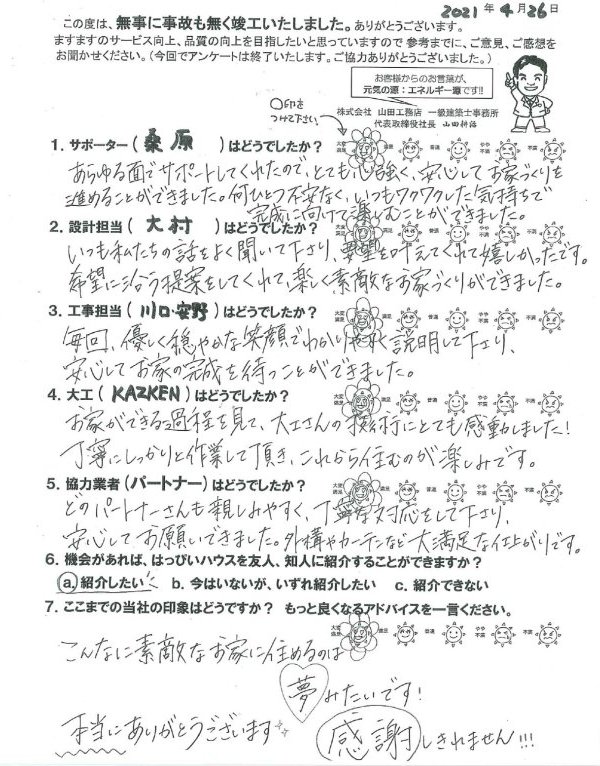 2021年4月26日
この度は、無事に事故も無く竣工いたしました。ありがとうございます。
ますますのサービス向上、品質の向上を目指したいと思っていますので 参考までに、ご意見、ご感想を
お聞かせください。（今回でアンケートは終了いたします。ご協力ありがとうございました。）
お客様からのお言葉が、
元気の源：エネルギー源です!!
〇印を
つけて下さい
株式会社 山田工務店 一級建築士事務所
代表取締役社長 山田耕治
1. サポーター（桑原）はどうでしたか？
大変満足 満足 普通 やや不満 不満
あらゆる面でサポートしてくれたので、とても心強く、安心してお家づくりを
進めることができました。何ひとつ不安なく、いつもワクワクした気持ちで
完成に向けて楽しむことができました。
2. 設計担当（大村）はどうでしたか？
大変満足 満足 普通 やや不満 不満
いつも私たちの話をよく聞いて下さり、要望を叶えてくれて嬉しかったです。
希望に沿う提案をしてくれて楽しく素敵なお家づくりができました。
3. 工事担当（川口・安野）はどうでしたか？
大変満足 満足 普通 やや不満 不満
毎回、優しく穏やかな笑顔でわかりやすく説明して下さり、
安心してお家の完成を待つことができました。
4. 大工（KAZKEN）はどうでしたか？
大変満足 満足 普通 やや不満 不満
お家ができる過程を見て、大工さんの技術にとても感動しました！
丁寧にしっかりと作業して頂き、これから住むのが楽しみです。
5. 協力業者（パートナー）はどうでしたか？
大変満足 満足 普通 やや不満 不満
どのパートナーさんも親しみやすく、丁寧な対応をして下さり、
安心してお願いできました。外構やカーテンなど大満足な仕上がりです。
6. 機会があれば、はっぴいハウスを友人、知人に紹介することができますか？
a. 紹介したい b. 今はいないが、いずれ紹介したい c. 紹介できない
7. ここまでの当社の印象はどうですか？ もっと良くなるアドバイスを一言ください。
大変満足 満足 普通 やや不満 不満
こんなに素敵なお家に住めるのは
夢みたいです！
本当にありがとうございます
感謝しきれません!!!